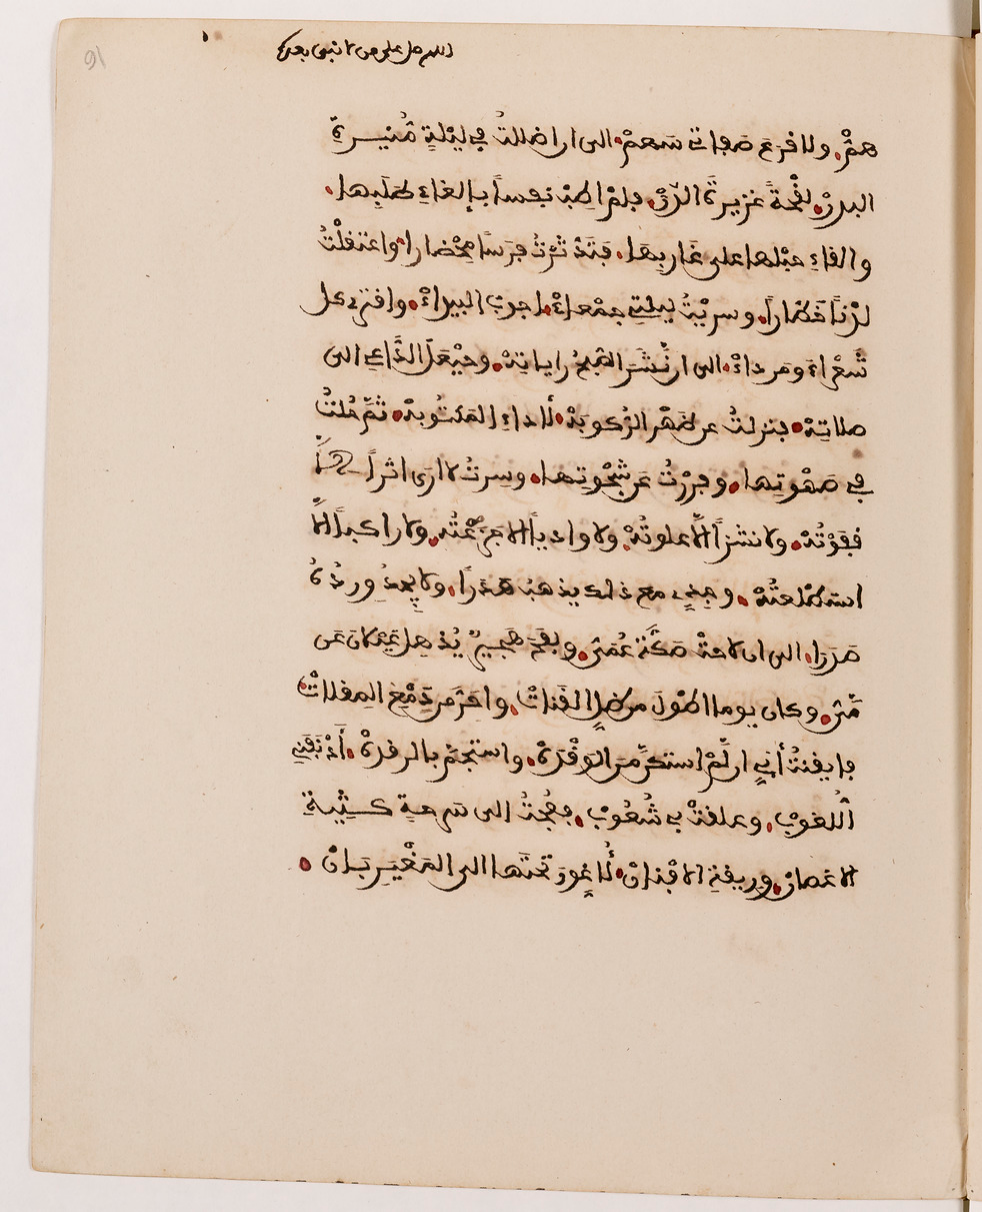 اللهم صل على من لا نبي بعده
هَمٌّ. ولا قرعَ صَفاتي سَهمْ. الى ان اضللتُ في ليلةٍ مُنيرةِ
البدرْ. لقْحةً غزيرةَ الدّرْ. فلمْ اطِبْ نفساً بإلغاءِ طلَبِها.
والقاءِ حبْلها على غَارِبِها. فتَدَثّرْتُ فرَسًا مِحْضارا. واعتقلْتُ
لدْناً خَطّاراً. وسريْتُ ليلتي جمْعاءْ. اجوبُ البيداءْ. واقتري كل
شَعْراءَ ومَرداءْ. الى ان نَشَرَ الصّبحُ راياتِهْ. وحيْعَلَ الدَّاعي الى
صلاتِهْ. فنزلتُ عن ظهْرِ الرَّكوبهْ. لأداءِ المَكتُوبهْ. ثمّ حُلتُ
في صَهْوتِها. وفرَرْتُ عَن شَحْوتِها. وسرتُ لا ارَى اثراً الاّ
قفَوْتُهْ. ولا نشزاً الاّ علوتُهْ. ولا وادياً الا جزَعْتُه. ولا راكباً الاّ
استطلعتُهْ. وجِدّي مع ذلك يذهبُ هَدَرا. ولا يجِدُ وِردُهُ
صَدَرا. الى ان حانتْ صَكّة عُمَيّ. ولفْحُ هَجيرٍ يُذهِلُ غَيْلانَ عن
مَيّ. وكان يوما اطْولَ من ظلِ القَناتْ. واحَرّ من دَمْعِ المِقلاتْ.
فايقنتُ أنّي ان لّمْ استكنَّ منَ الوَقْدَهْ. واستجمَّ بالرقدهْ. أدْنَفَني
اللُّغوبْ. وعلِقتْ بي شَعُوبْ. فعُجتُ الى سَرحةٍ كثيفةِ
الاغصانْ. وريقةِ الافنانْ. لأُغوِّرَ تحتَها الى المُغَيرِبانْ.